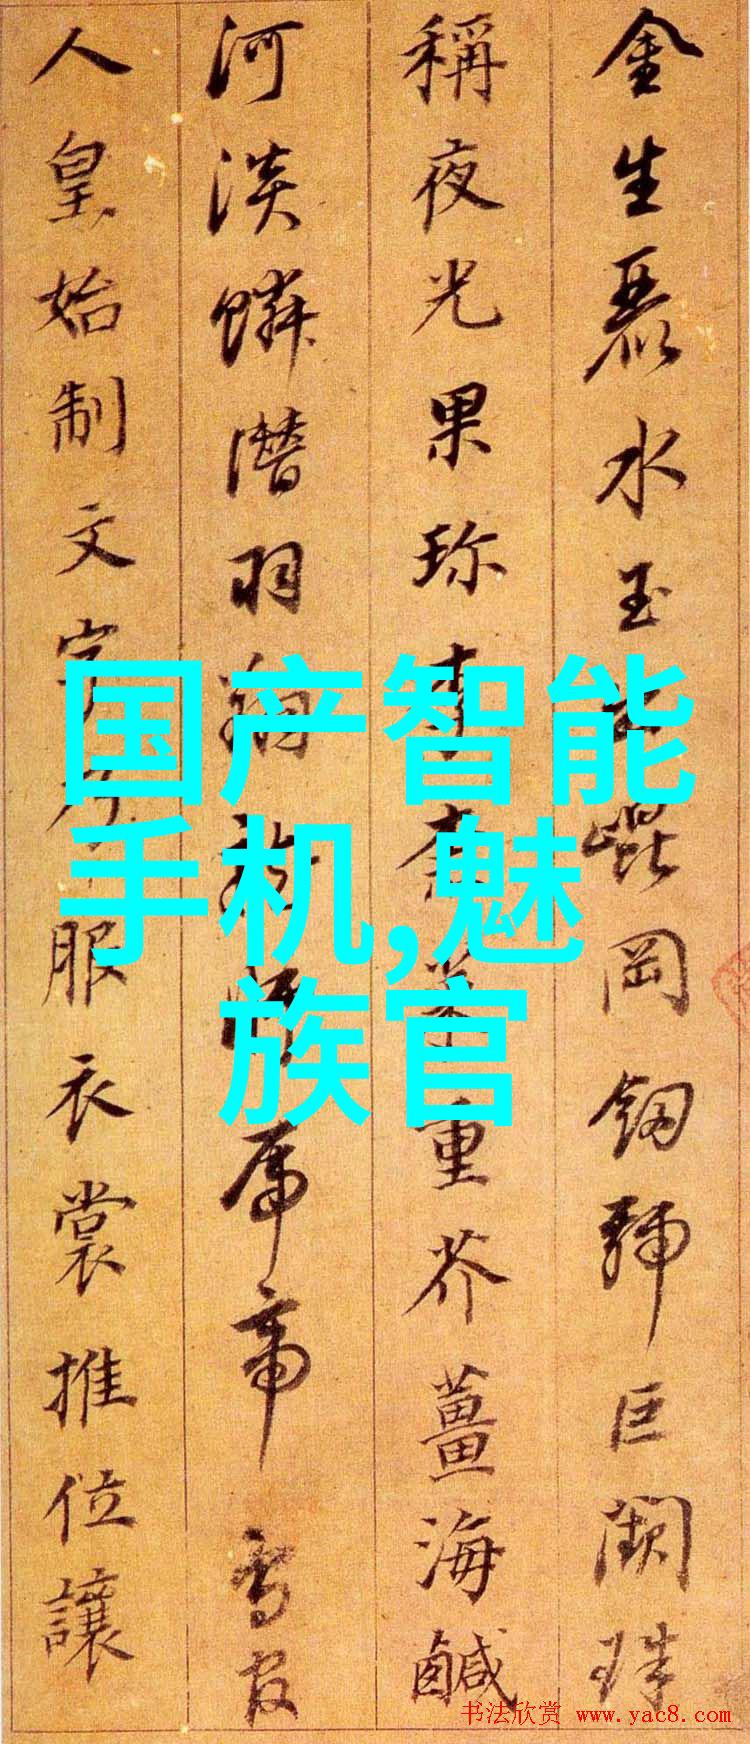 金生麗水玉崑岡釰號巨闕珠
稱夜光果珍李柰菜重芥薑海鹹
河淡鱗潛羽翔帝鳥官
人皇始制文字乃服衣裳推位讓
国产智能
手机,魅
族官
书法欣赏 www.yac8.com